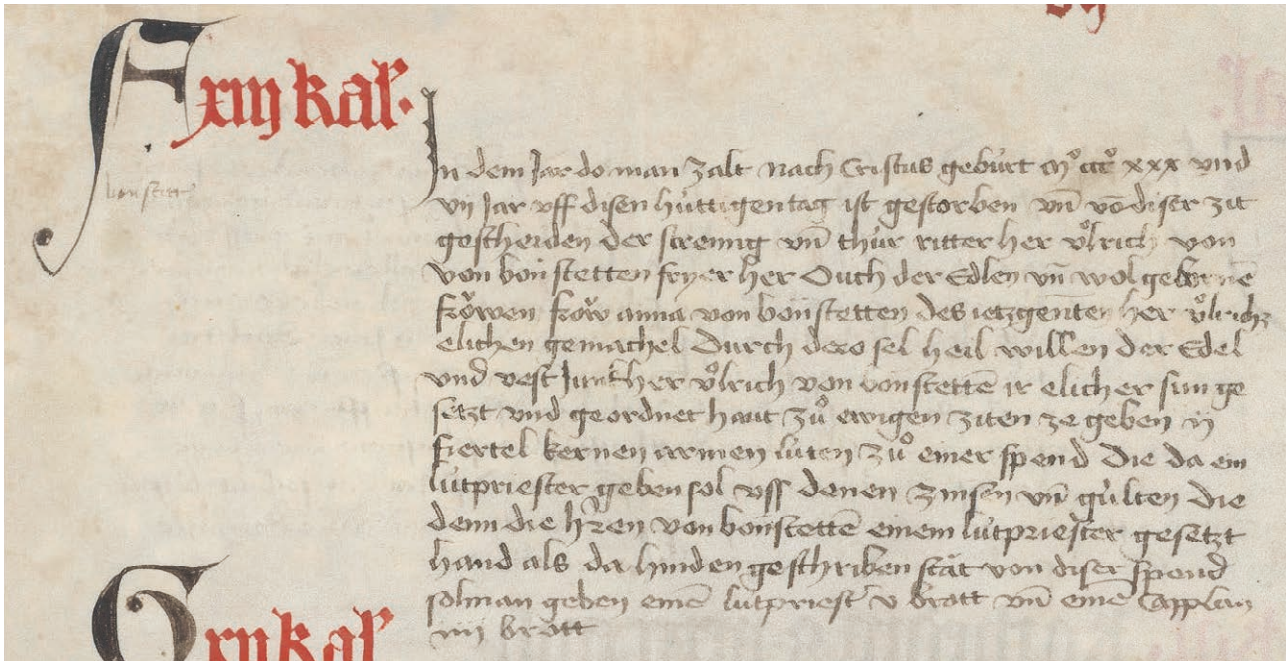 F xiij kal'.
In dem Jar do man zalt nach Cristus gebürt mͦ cccͦ xxx vnd
vij Jar vff disen hüttigen tag ist gestorben vn̄ vō diser zit
gescheiden der streng vn̄ thür ritter her vͦlrich von
von bonstetten fryer her Ouch der Edlen vn̄ wolgebornē
frowen frow anna von bonstetten des ietzgenten her vͦlrichs
elichen gemachel Durch dero sel heil willen der Edel
vnd vest Junkher vͦlrich von bonstettē ir elicher sun ge
setzt vnd geordnet haut zuͦ ewigen ziten ze geben ij
fiertel kernen armen lüten zuͦ einer spend Die da ein
lütpriester geben sol vss denen zinsen vn̄ gülten die
denn die h'ren von bonstettē einem lütpriester gesetzt
hand als da hinden geschriben stät von diser spend
sol man geben einē lütpriest' v brott vn̄ einē Capplan
iiij brott
bonstett
G xij kal'